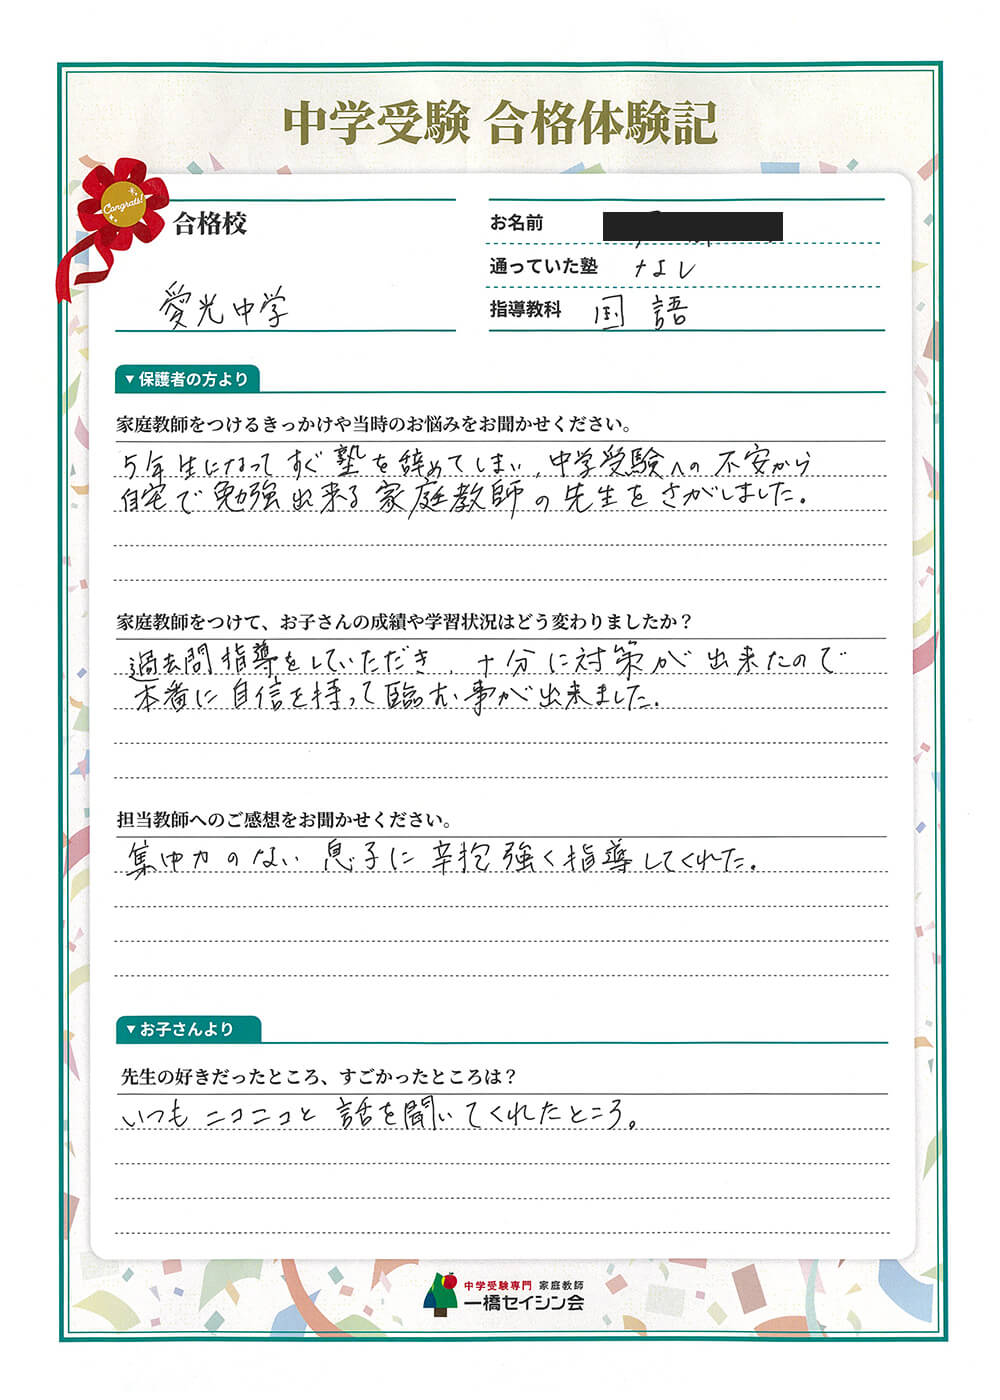 中学受験 合格体験記
Congrats!
合格校
愛光中学
お名前
通っていた塾 なし
指導教科 国語
▼保護者の方より
家庭教師をつけるきっかけや当時のお悩みをお聞かせください。
5年生になってすぐ塾を辞めてしまい、中学受験への不安から
自宅で勉強出来る家庭教師の先生をさがしました。
家庭教師をつけて、お子さんの成績や学習状況はどう変わりましたか？
過去問指導をしていただき、十分に対策が出来たので
本番に自信を持って臨む事が出来ました。
担当教師へのご感想をお聞かせください。
集中力のない息子に辛抱強く指導してくれた。
▼お子さんより
先生の好きだったところ、すごかったところは？
いつもニコニコと話を聞いてくれたところ。
中学受験専門 家庭教師
一橋セイシン会